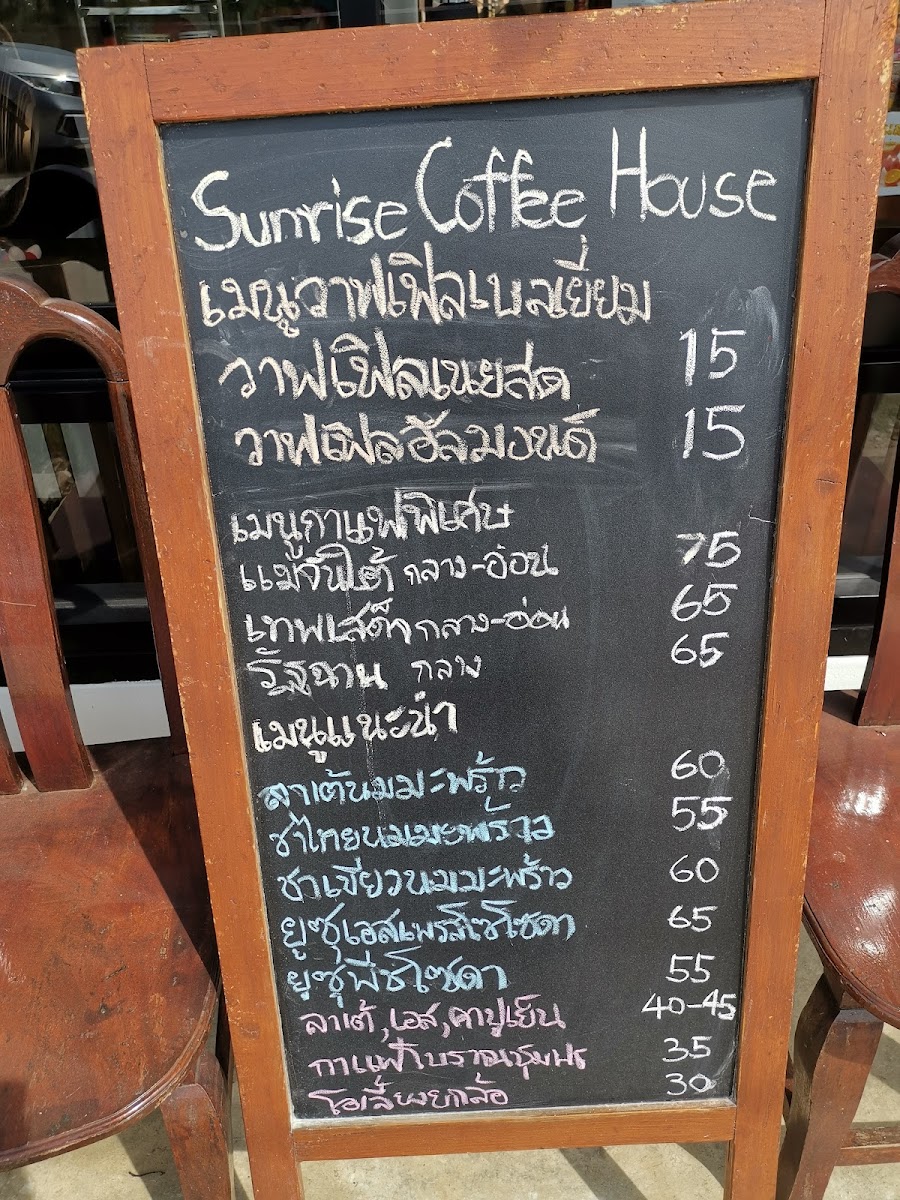 Sunrise Coffee House
เมนูวาฟเฟิลเบลเยี่ยม
วาฟเฟิลเนยสด 15
วาฟเฟิลอัลมอนด์ 15
เมนูกาแฟพิเศษ
แม่จันใต้ กลาง-อ่อน 75
เทพเสด็จ กลาง-อ่อน 65
รัฐฉาน กลาง 65
เมนูแนะนำ
ลาเต้นมมะพร้าว 60
ชาไทยนมมะพร้าว 55
ชาเขียวนมมะพร้าว 60
ยูซุเอสเพรสโซ่โซดา 65
ยูซุพีชโซดา 55
ลาเต้,เอส,คาปูเย็น 40-45
กาแฟโบราณชุมพร 35
โอเลี้ยงยกล้อ 30